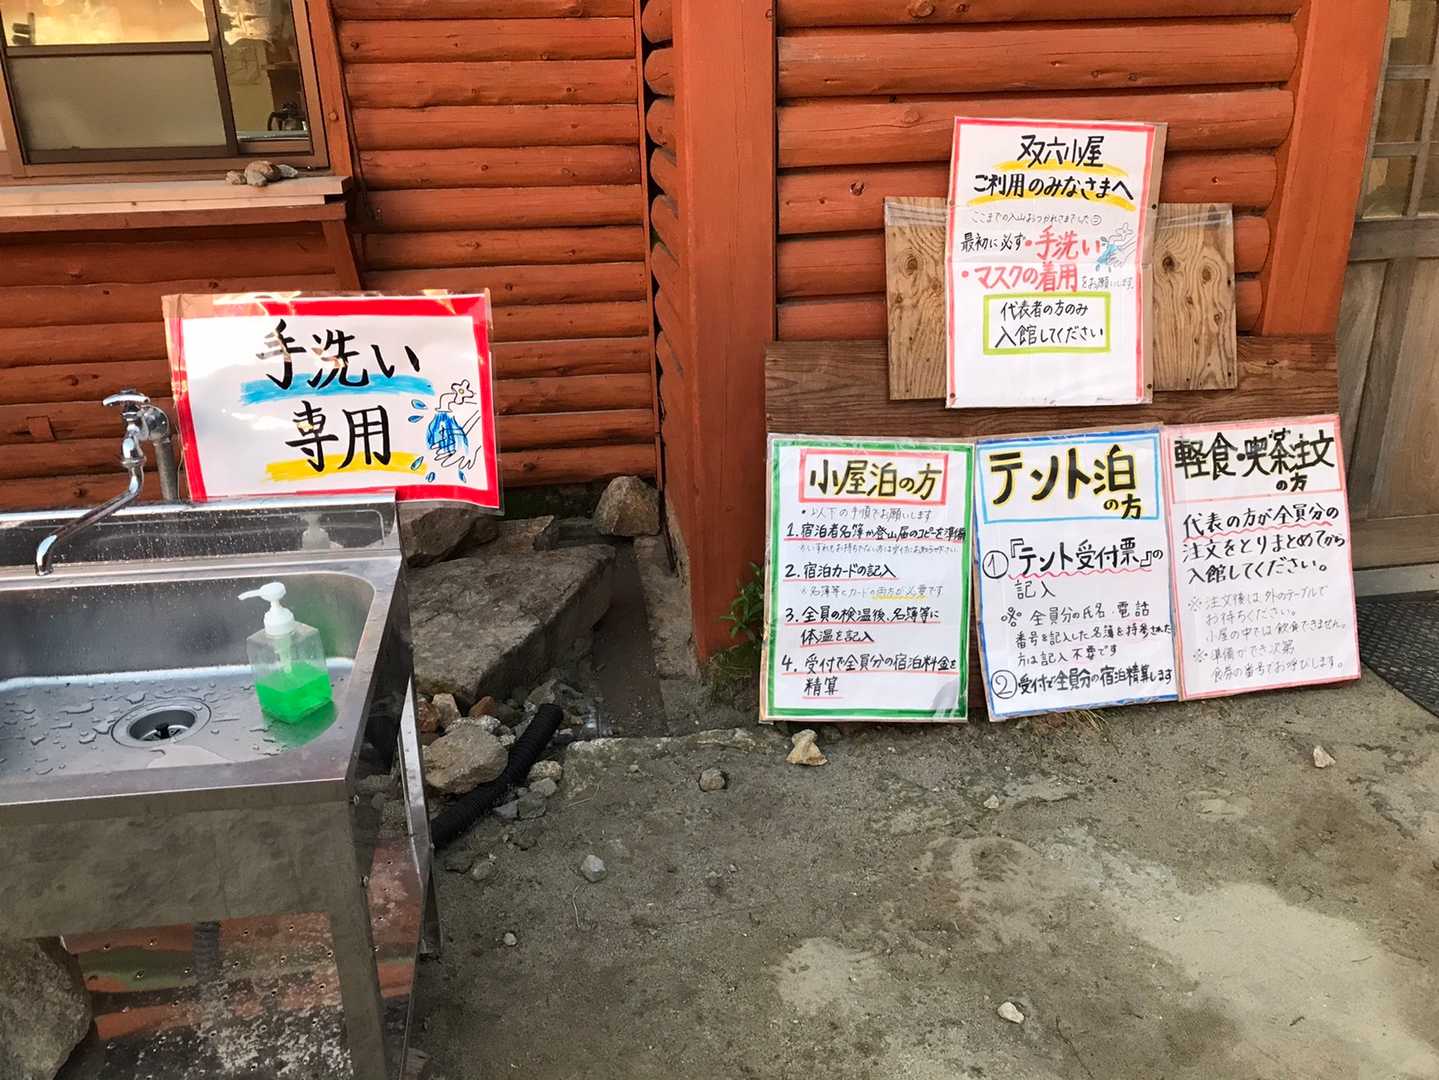 手洗い
専用
双六小屋
ご利用のみなさまへ
ここまでの入山おつかれさまでした
最初に必ず・手洗い
・マスクの着用をお願いします。
代表者の方のみ
入館してください
小屋泊の方
・以下の手順でお願いします
1. 宿泊者名簿か登山届のコピーを準備
2. 宿泊カードの記入
※名簿等とカードの両方が必要です
3. 全員の検温後、名簿等に
体温を記入
4. 受付で全員分の宿泊料金を
精算
テント泊
の方
①『テント受付票』の
記入
※全員分の氏名、電話
番号を記入した名簿を持参された
方は記入不要です
②受付で全員分の宿泊精算します
軽食・喫茶注文
の方
代表の方が全員分の
注文をとりまとめてから
入館してください。
※注文後は、外のテーブルで
お待ちください。
小屋の中では飲食できません。
※準備ができ次第
食券の番号でお呼びします。